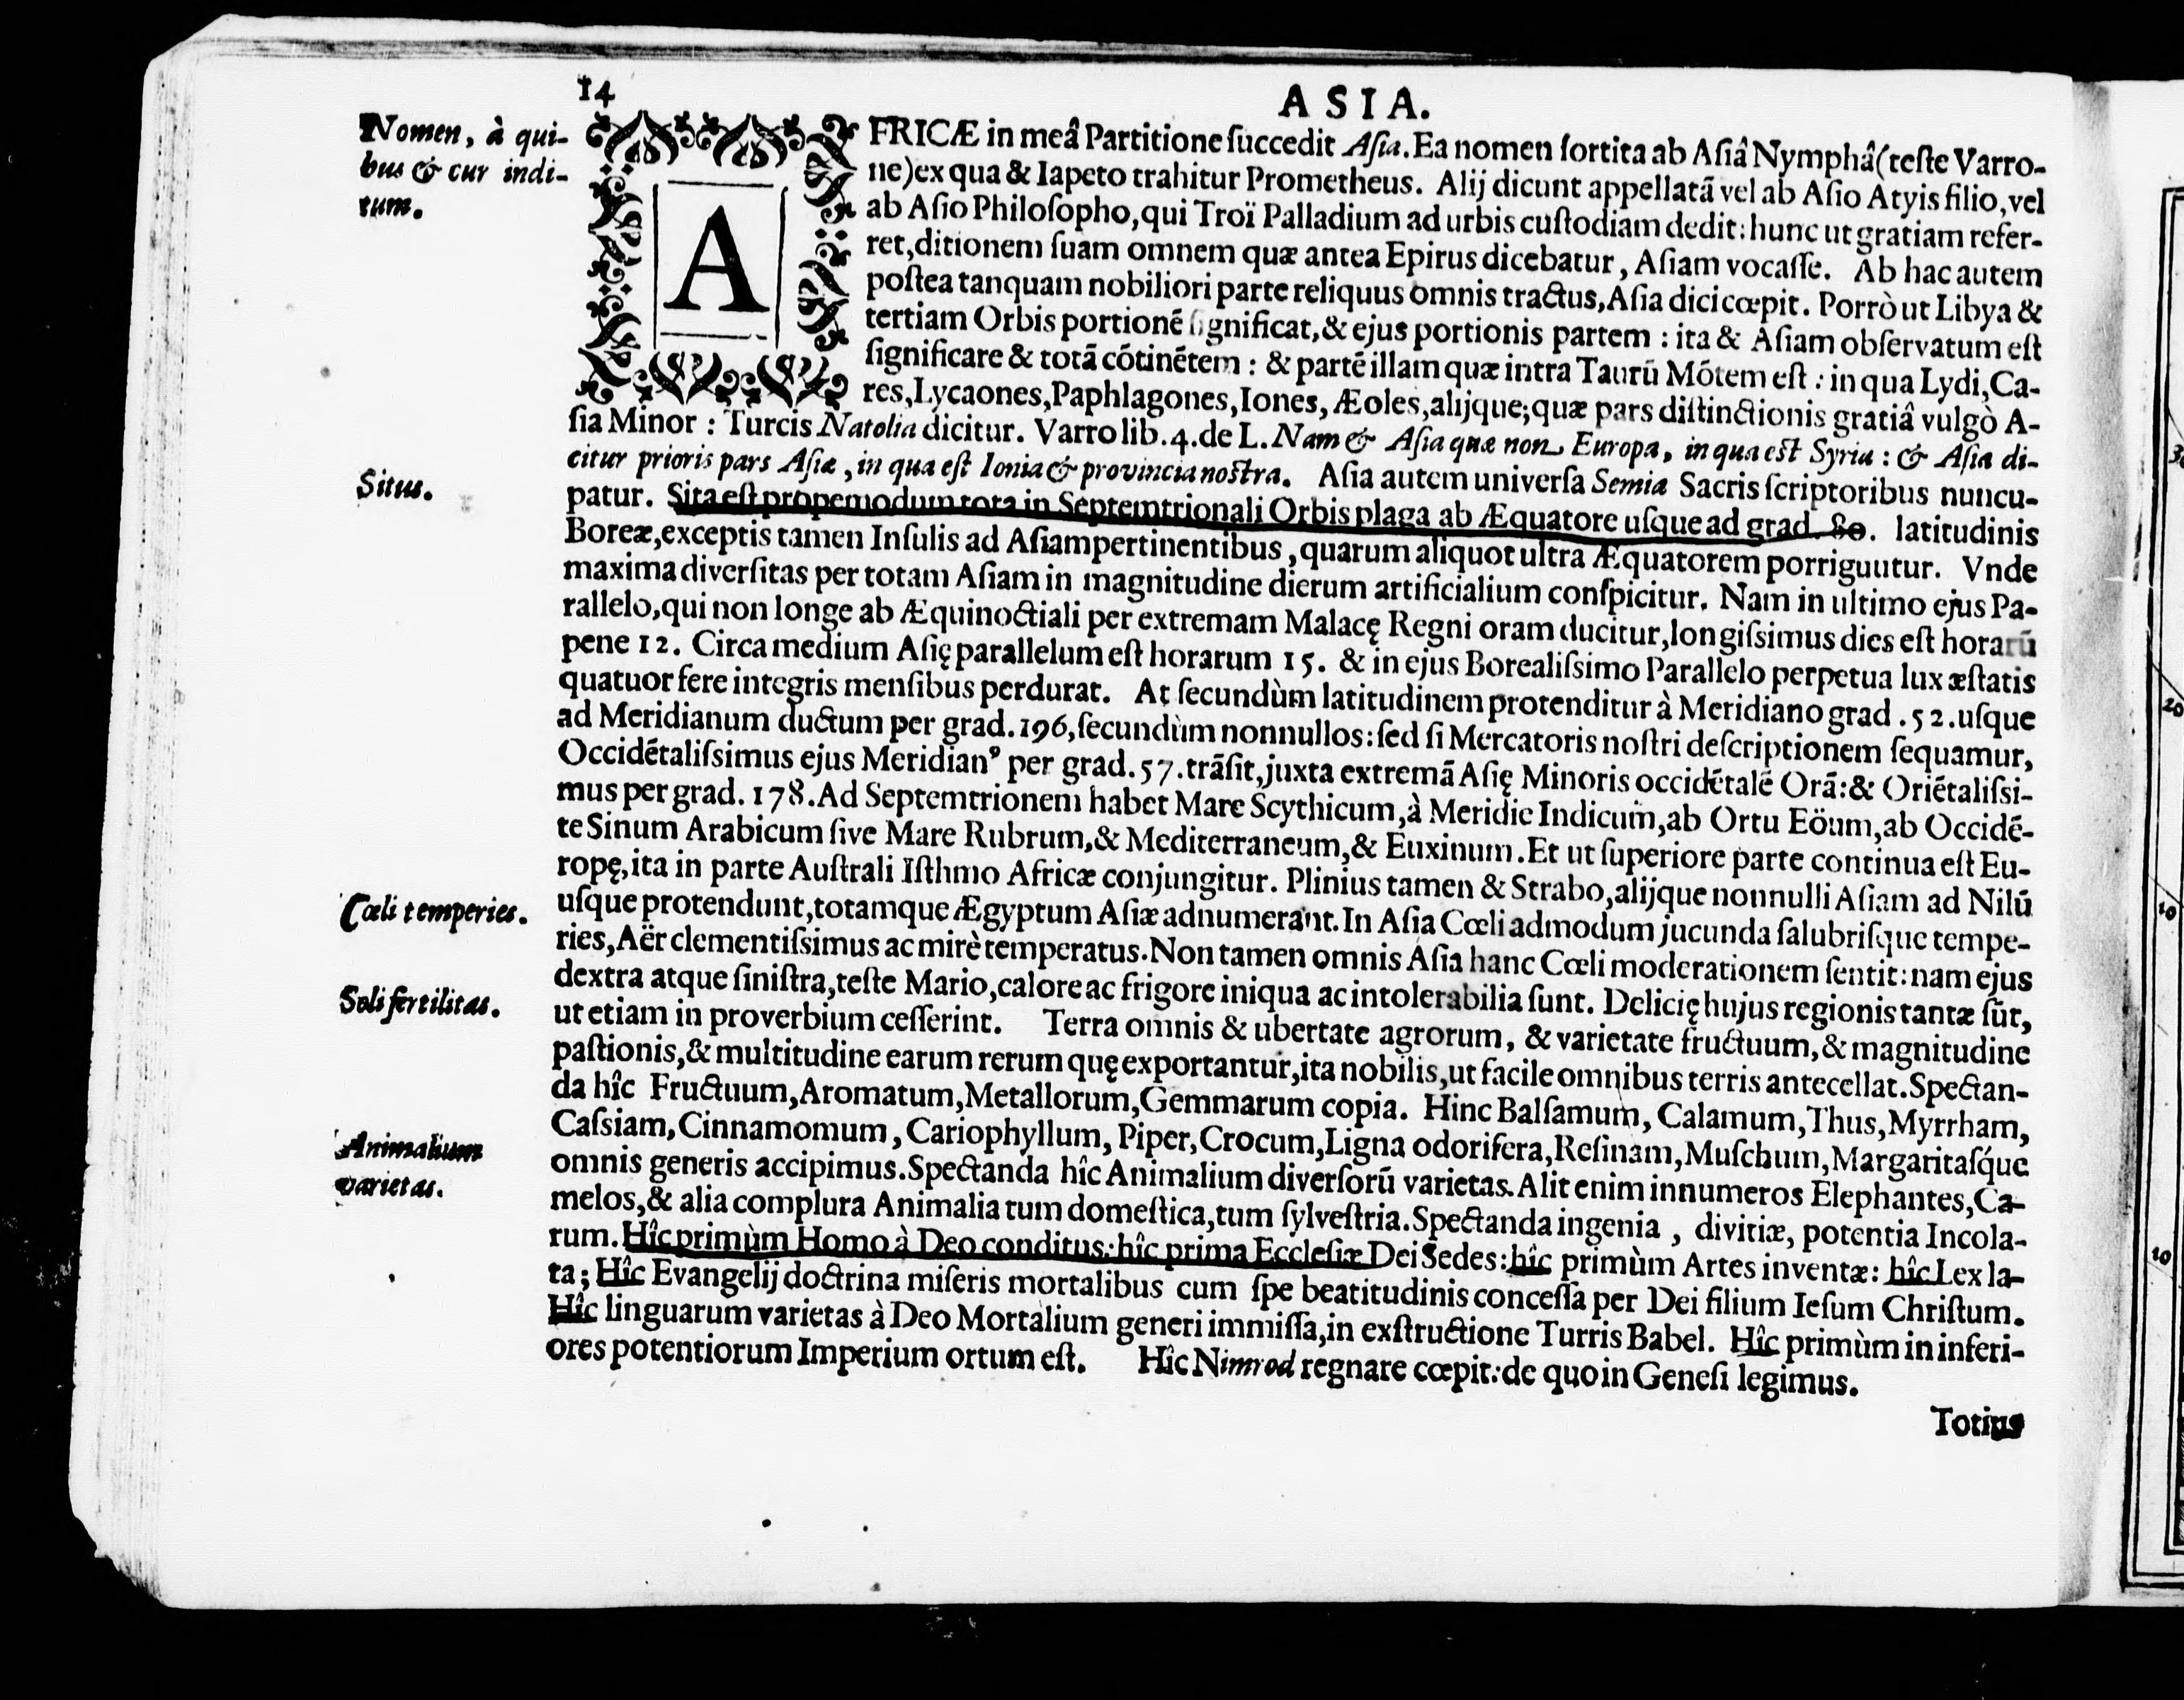 14
ASIA.
Nomen, à qui-
bus & cur indi-
tum.
AFRICÆ in meâ Partitione ſuccedit Aſia. Ea nomen ſortita ab Aſiâ Nymphâ (teſte Varro-
ne) ex qua & Iapeto trahitur Prometheus. Alij dicunt appellatã vel ab Aſio Atyis filio, vel
ab Aſio Philoſopho, qui Troï Palladium ad urbis cuſtodiam dedit: hunc ut gratiam refer-
ret, ditionem ſuam omnem quæ antea Epirus dicebatur, Aſiam vocaſſe. Ab hac autem
poſtea tanquam nobiliori parte reliquus omnis tractus, Aſia dici cœpit. Porrò ut Libya &
tertiam Orbis portionẽ ſignificat, & ejus portionis partem : ita & Aſiam obſervatum eſt
ſignificare & totã cõtinẽtem : & partẽ illam quæ intra Taurũ Mõtem eſt : in qua Lydi, Ca-
res, Lycaones, Paphlagones, Iones, Æoles, alijque; quæ pars diſtinctionis gratiâ vulgò A-
ſia Minor : Turcis Natolia dicitur. Varro lib. 4. de L. Nam & Aſia quæ non Europa, in qua eſt Syria : & Aſia di-
citur prioris pars Aſiæ, in qua eſt Ionia & provincia noſtra. Aſia autem univerſa Semia Sacris ſcriptoribus nuncu-
Situs.
patur. Sita eſt propemodum tota in Septemtrionali Orbis plaga ab Æquatore uſque ad grad. 80. latitudinis
Boreæ, exceptis tamen Inſulis ad Aſiam pertinentibus, quarum aliquot ultra Æquatorem porriguutur. Vnde
maxima diverſitas per totam Aſiam in magnitudine dierum artificialium conſpicitur. Nam in ultimo ejus Pa-
rallelo, qui non longe ab Æquinoctiali per extremam Malacę Regni oram ducitur, longiſsimus dies eſt horarũ
pene 12. Circa medium Aſię parallelum eſt horarum 15. & in ejus Borealiſsimo Parallelo perpetua lux æſtatis
quatuor fere integris menſibus perdurat. At ſecundùm latitudinem protenditur à Meridiano grad. 52. uſque
ad Meridianum ductum per grad. 196, ſecundùm nonnullos: ſed ſi Mercatoris noſtri deſcriptionem ſequamur,
Occidẽtaliſsimus ejus Meridianꝰ per grad. 57. trãſit, juxta extremã Aſię Minoris occidẽtalẽ Orã: & Oriẽtaliſsi-
mus per grad. 178. Ad Septemtrionem habet Mare Scythicum, à Meridie Indicum, ab Ortu Eöum, ab Occidẽ-
te Sinum Arabicum ſive Mare Rubrum, & Mediterraneum, & Euxinum. Et ut ſuperiore parte continua eſt Eu-
ropę, ita in parte Auſtrali Iſthmo Africæ conjungitur. Plinius tamen & Strabo, alijque nonnulli Aſiam ad Nilũ
Cœli temperies.
uſque protendunt, totamque Ægyptum Aſiæ adnumerant. In Aſia Cœli admodum jucunda ſalubriſque tempe-
ries, Aër clementiſsimus ac mirè temperatus. Non tamen omnis Aſia hanc Cœli moderationem ſentit: nam ejus
dextra atque ſiniſtra, teſte Mario, calore ac frigore iniqua ac intolerabilia ſunt. Delicię hujus regionis tantæ ſũt,
Soli fertilitas.
ut etiam in proverbium ceſſerint. Terra omnis & ubertate agrorum, & varietate fructuum, & magnitudine
paſtionis, & multitudine earum rerum quę exportantur, ita nobilis, ut facile omnibus terris antecellat. Spectan-
da hîc Fructuum, Aromatum, Metallorum, Gemmarum copia. Hinc Balſamum, Calamum, Thus, Myrrham,
Caſsiam, Cinnamomum, Cariophyllum, Piper, Crocum, Ligna odorifera, Reſinam, Muſchum, Margaritaſq́ue
Animalium
varietas.
omnis generis accipimus. Spectanda hîc Animalium diverſorũ varietas. Alit enim innumeros Elephantes, Ca-
melos, & alia complura Animalia tum domeſtica, tum ſylveſtria. Spectanda ingenia, divitiæ, potentia Incola-
rum. Hîc primùm Homo à Deo conditus: hîc prima Eccleſiæ Dei Sedes: hîc primùm Artes inventæ: hîc Lex la-
ta; Hîc Evangelij doctrina miſeris mortalibus cum ſpe beatitudinis conceſſa per Dei filium Ieſum Chriſtum.
Hîc linguarum varietas à Deo Mortalium generi immiſſa, in exſtructione Turris Babel. Hîc primùm in inferi-
ores potentiorum Imperium ortum eſt. Hîc Nimrod regnare cœpit: de quo in Geneſi legimus.
Totius
30
20
10
10